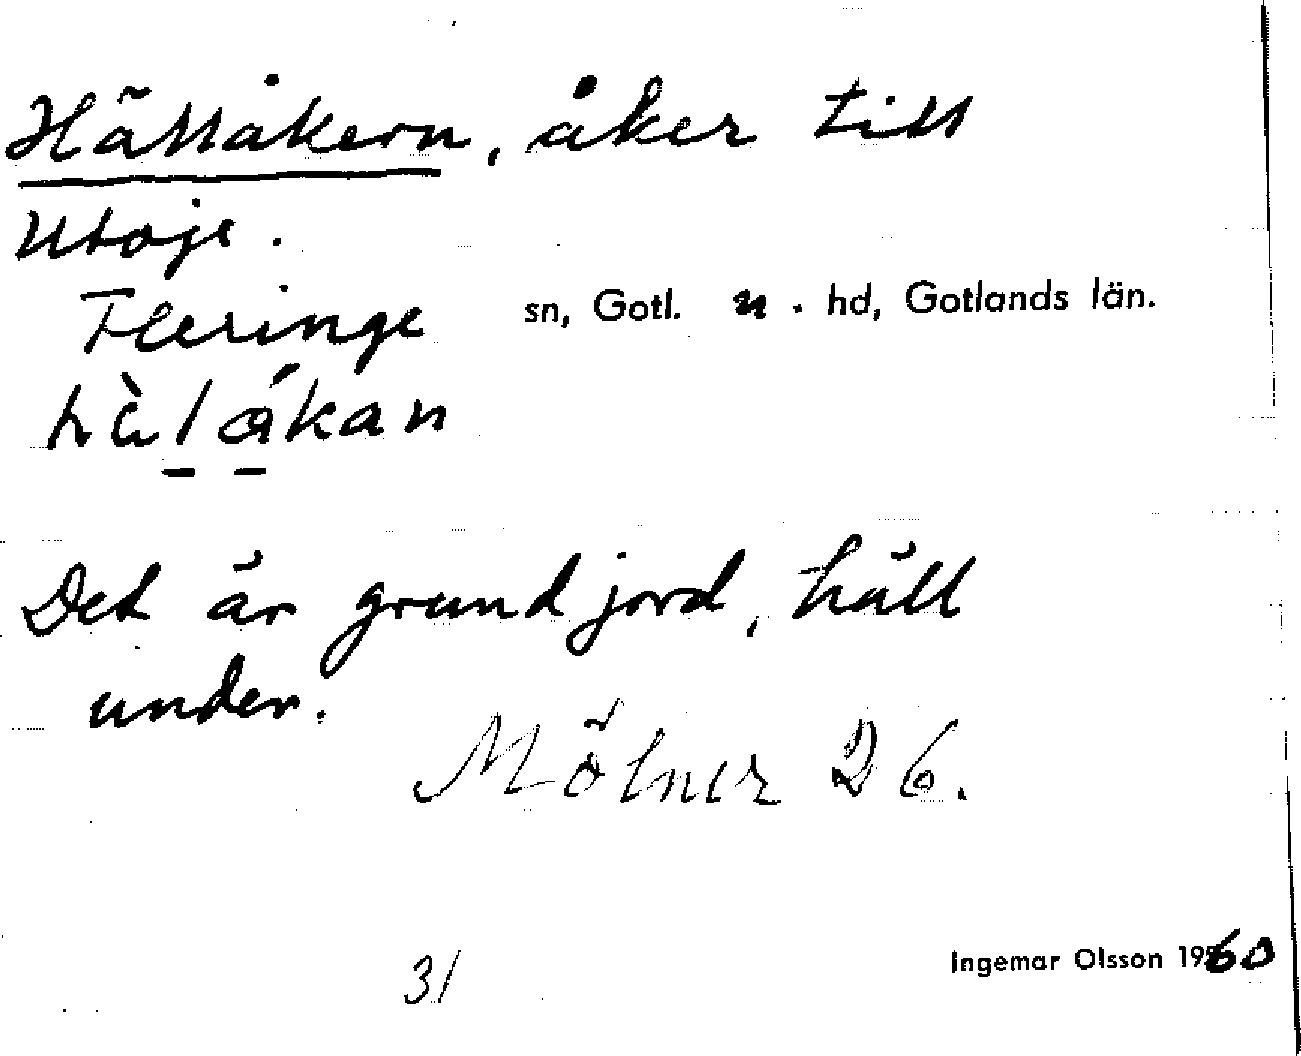 Hällåkern, åker till
Utoje.
Fleringe sn, Gotl. n. hd, Gotlands län.
hàlåkan
Det är grund jord, häll
under.
Mölner 26.
31
Ingemar Olsson 1960